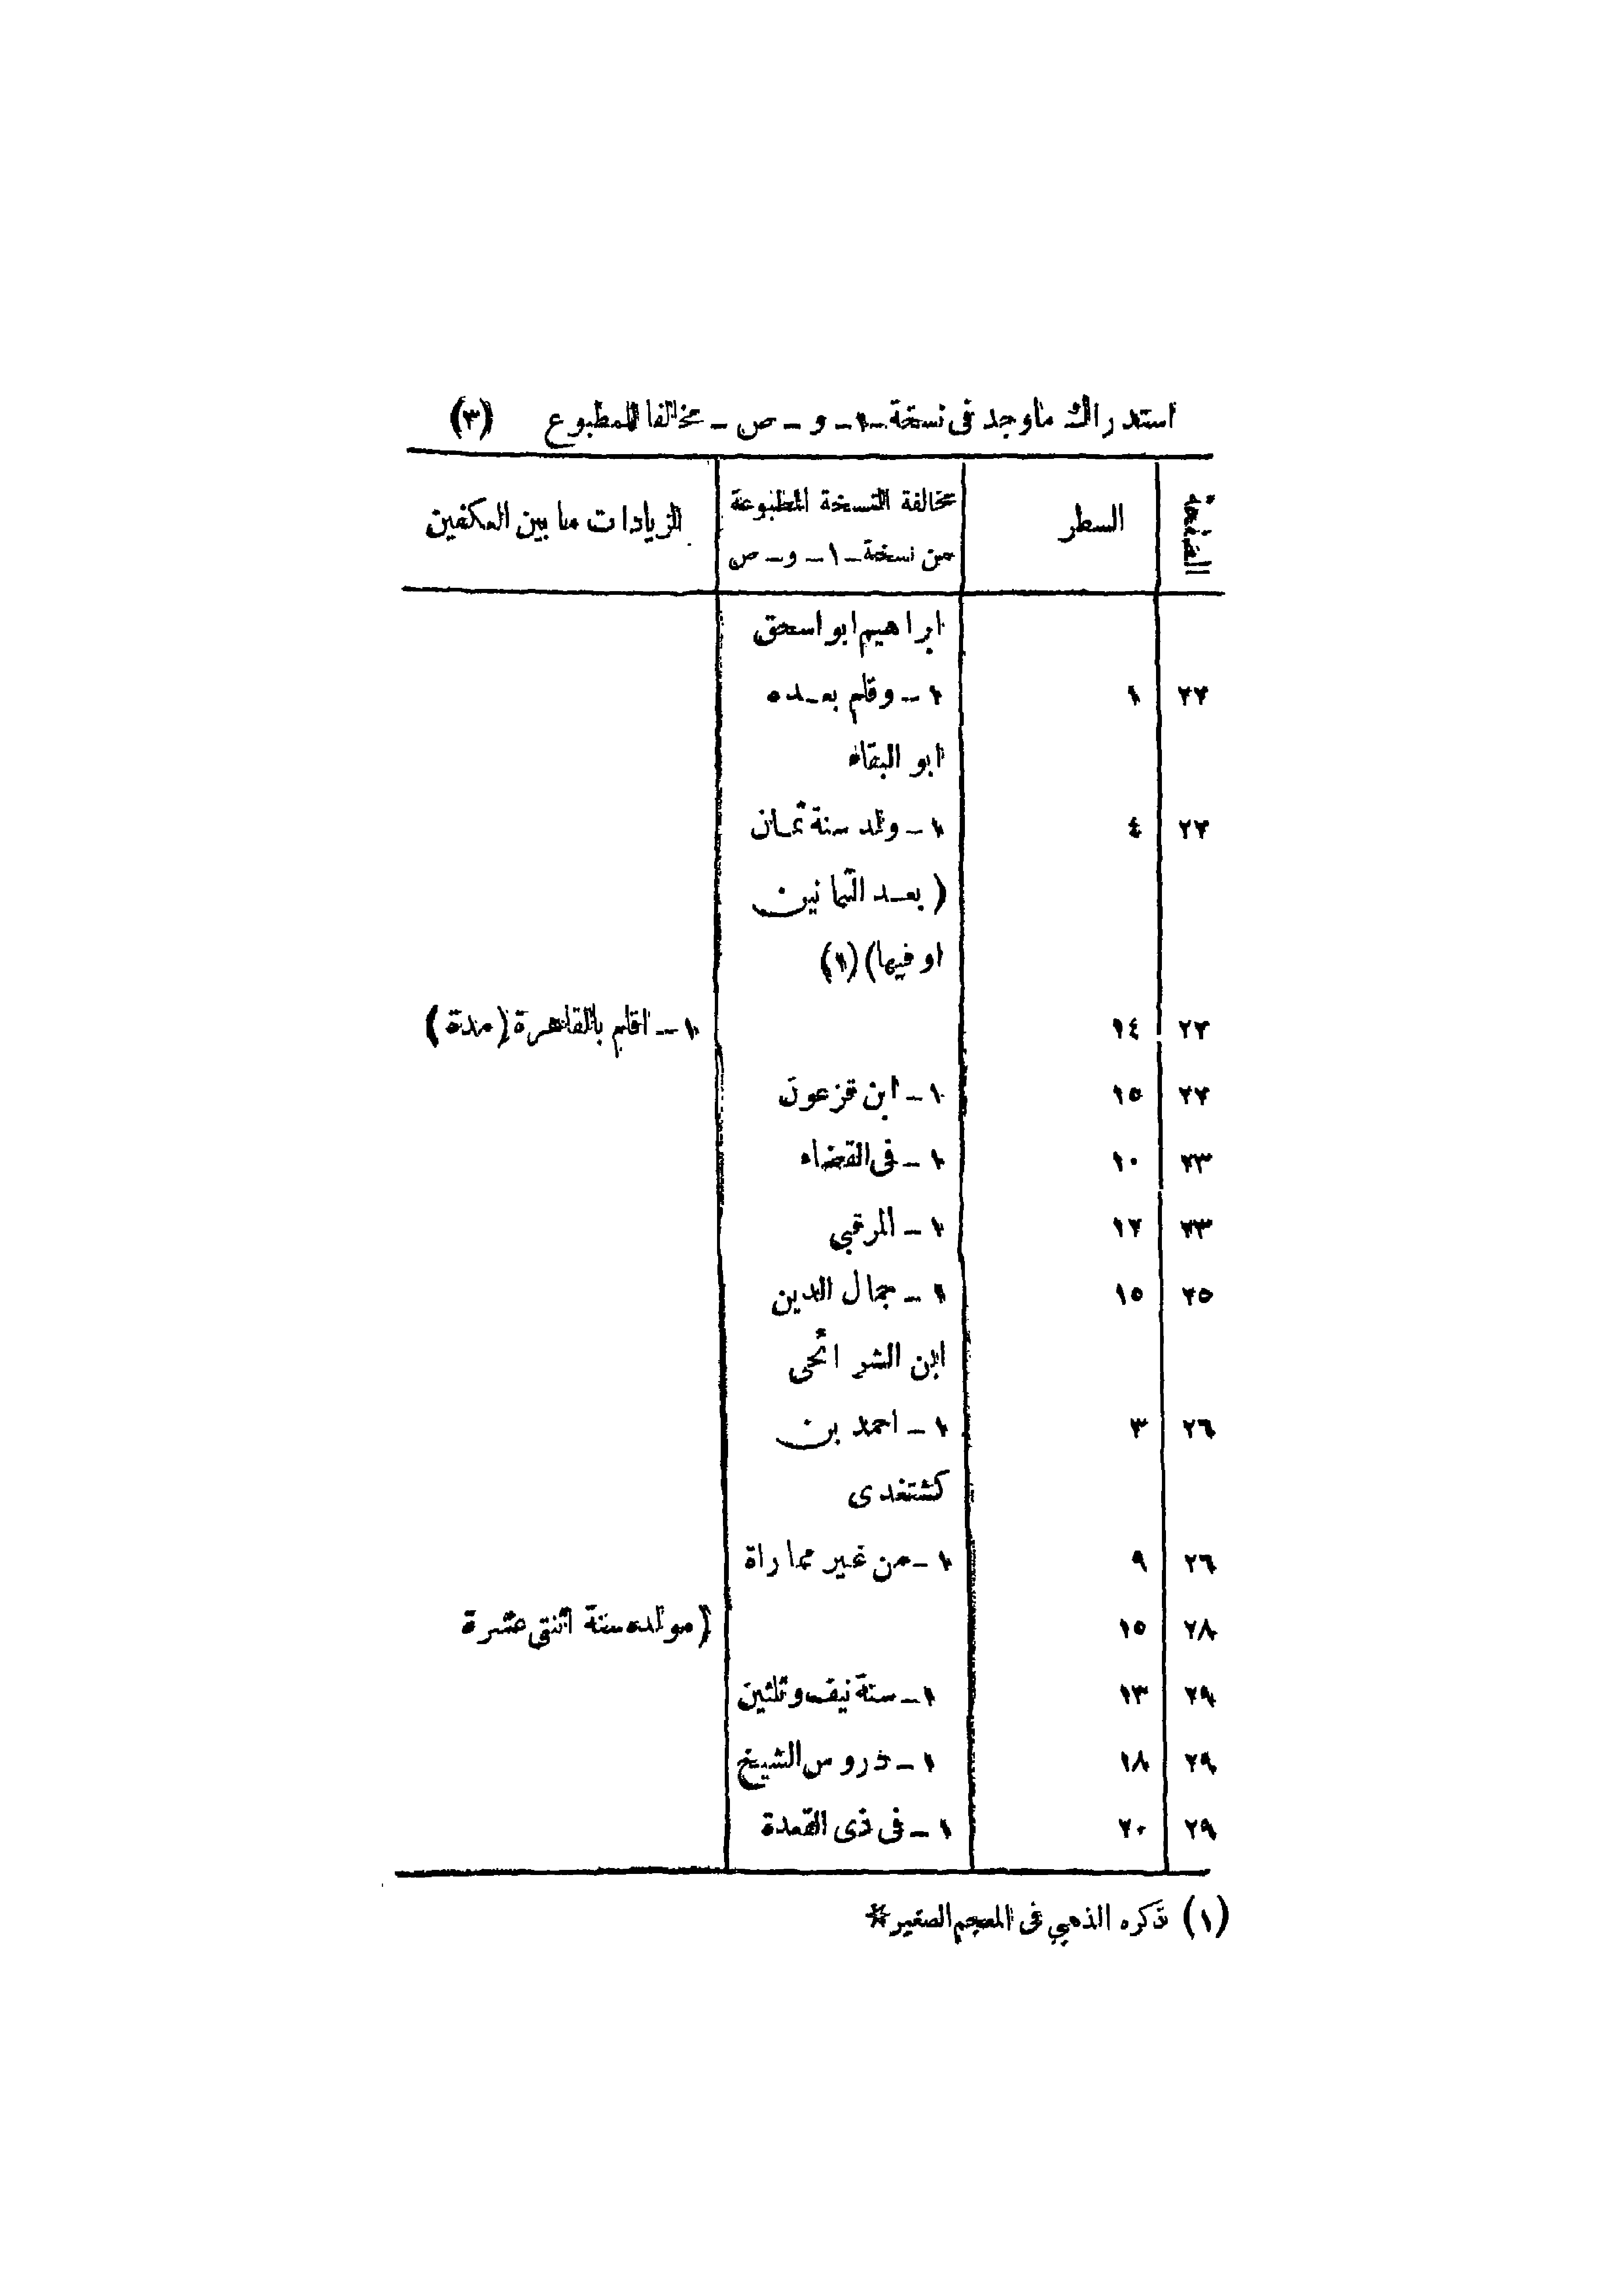 استدراك ماوجد فى نسخة -١- و - ص - مخالفا للمطبوع (٣)
الصفحة السطر مخالفة النسخة المطبوعة الزيادات ما بين المكفين
من نسخة -١- و - ص
ابراهيم ابو اسحق
٢٢ ١ ١ - وقلم بعده
ابو البقاء
٢٢ ٤ ١ - ولد سنة ثمان
( بعد الثمانين
او فيها) (١)
٢٢ ١٤ ١ - اقام بالقاهرة (مدة)
٢٢ ١٥ ١ - ابن قزعون
٢٣ ١٠ ١ - فى القضاء
٢٣ ١٢ ١ - المرقبي
٢٥ ١٥ ١ - جمال الدين
ابن الشرائحى
٢٦ ٣ ١ - احمد بن
كشتغدى
٢٦ ٩ ١ - من غير مماراة
٢٨ ١٥ (مولده سنة اثنتى عشرة
٢٩ ١٣ ١ - سنة نيف وثلثين
٢٩ ١٨ ١ - دروس الشيخ
٢٩ ٢٠ ١ - فى ذى القعدة
(١) ذكره الذهبي فى المعجم الصغير *